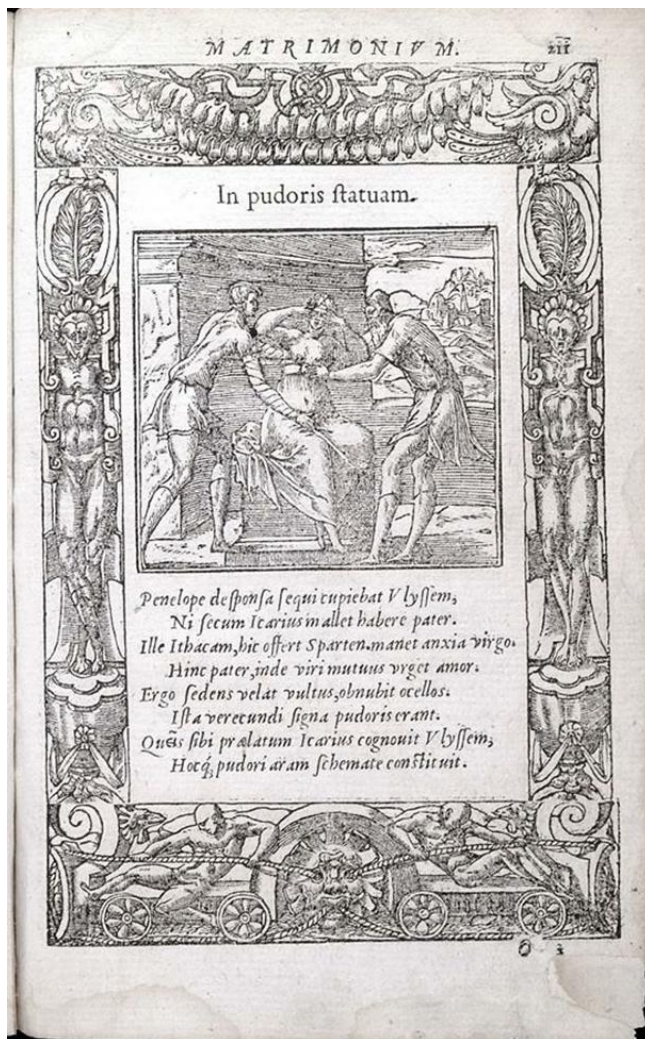 MATRIMONIVM. 211
In pudoris ſtatuam.
Penelope deſponſa ſequi cupiebat Vlyſſem,
Ni ſecum Icarius mallet habere pater.
Ille Ithacam, hic offert Sparten. manet anxia virgo.
Hinc pater, inde viri mutuus vrget amor.
Ergo ſedens velat vultus, obnubit ocellos.
Iſta verecundi ſigna pudoris erant.
Queis ſibi prælatum Icarius cognovit Vlyſſem,
Hocq́; pudori aram ſchemate conſtituit.